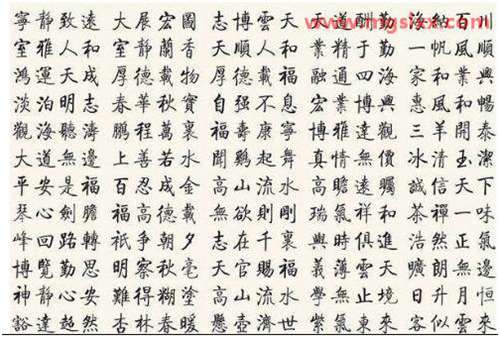 寧靜致遠 大展宏圖 志博雲天 天道酬勤 海納百川
室雅人和 室靜蘭香 志順人和 業精于勤 一帆風順
鴻運天成 厚德載物 厚德載福 融通四海 家和業興
淡泊明志 春華秋實 自强不息 宏業博興 惠風和暢
觀海聽濤 鵬程萬裏 福壽康寧 博雅達觀 三羊開泰
大道無邊 上善若水 聞鷄起舞 真情無價 冰清玉潔
平安是福 百忍成金 高山流水 高瞻遠矚 誠信天下
琴心劍膽 福高德載 無欲則剛 瑞氣祥和 茶禪一味
峰回路轉 祇争朝夕 志在千裏 與時俱進 浩然正氣
博覽勤思 明察秋毫 天官賜福 義薄雲天 曠朗無邊
神靜心安 難得糊塗 高山流水 學無止境 日升月恒
豁達超然 杏林春暖 懸壺濟世 紫氣東來 客似雲來